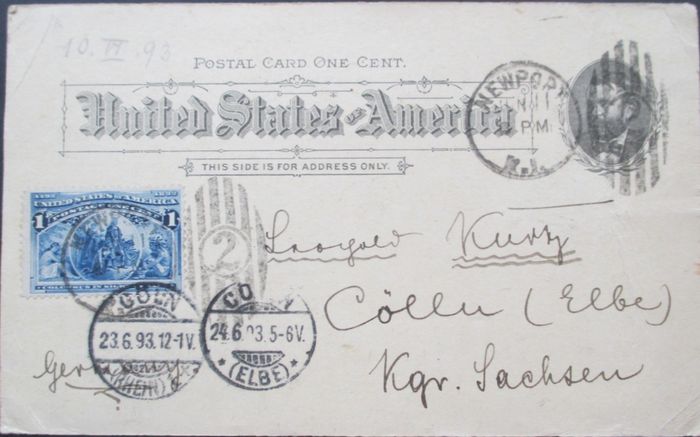 10. VI. 93
POSTAL CARD ONE CENT.
United States of America
THIS SIDE IS FOR ADDRESS ONLY.
NEWPORT
R.I.
1492 1892
UNITED STATES OF AMERICA
1 POSTAGE ONE CENT 1
COLUMBUS IN SIGHT
NEWPORT
2
Leopold Kurz
Cölln (Elbe)
Kgr. Sachsen
Germany
CÖLN
23.6.93.12-1V.
(RHEIN)
24.6.93.5-6V.
(ELBE)